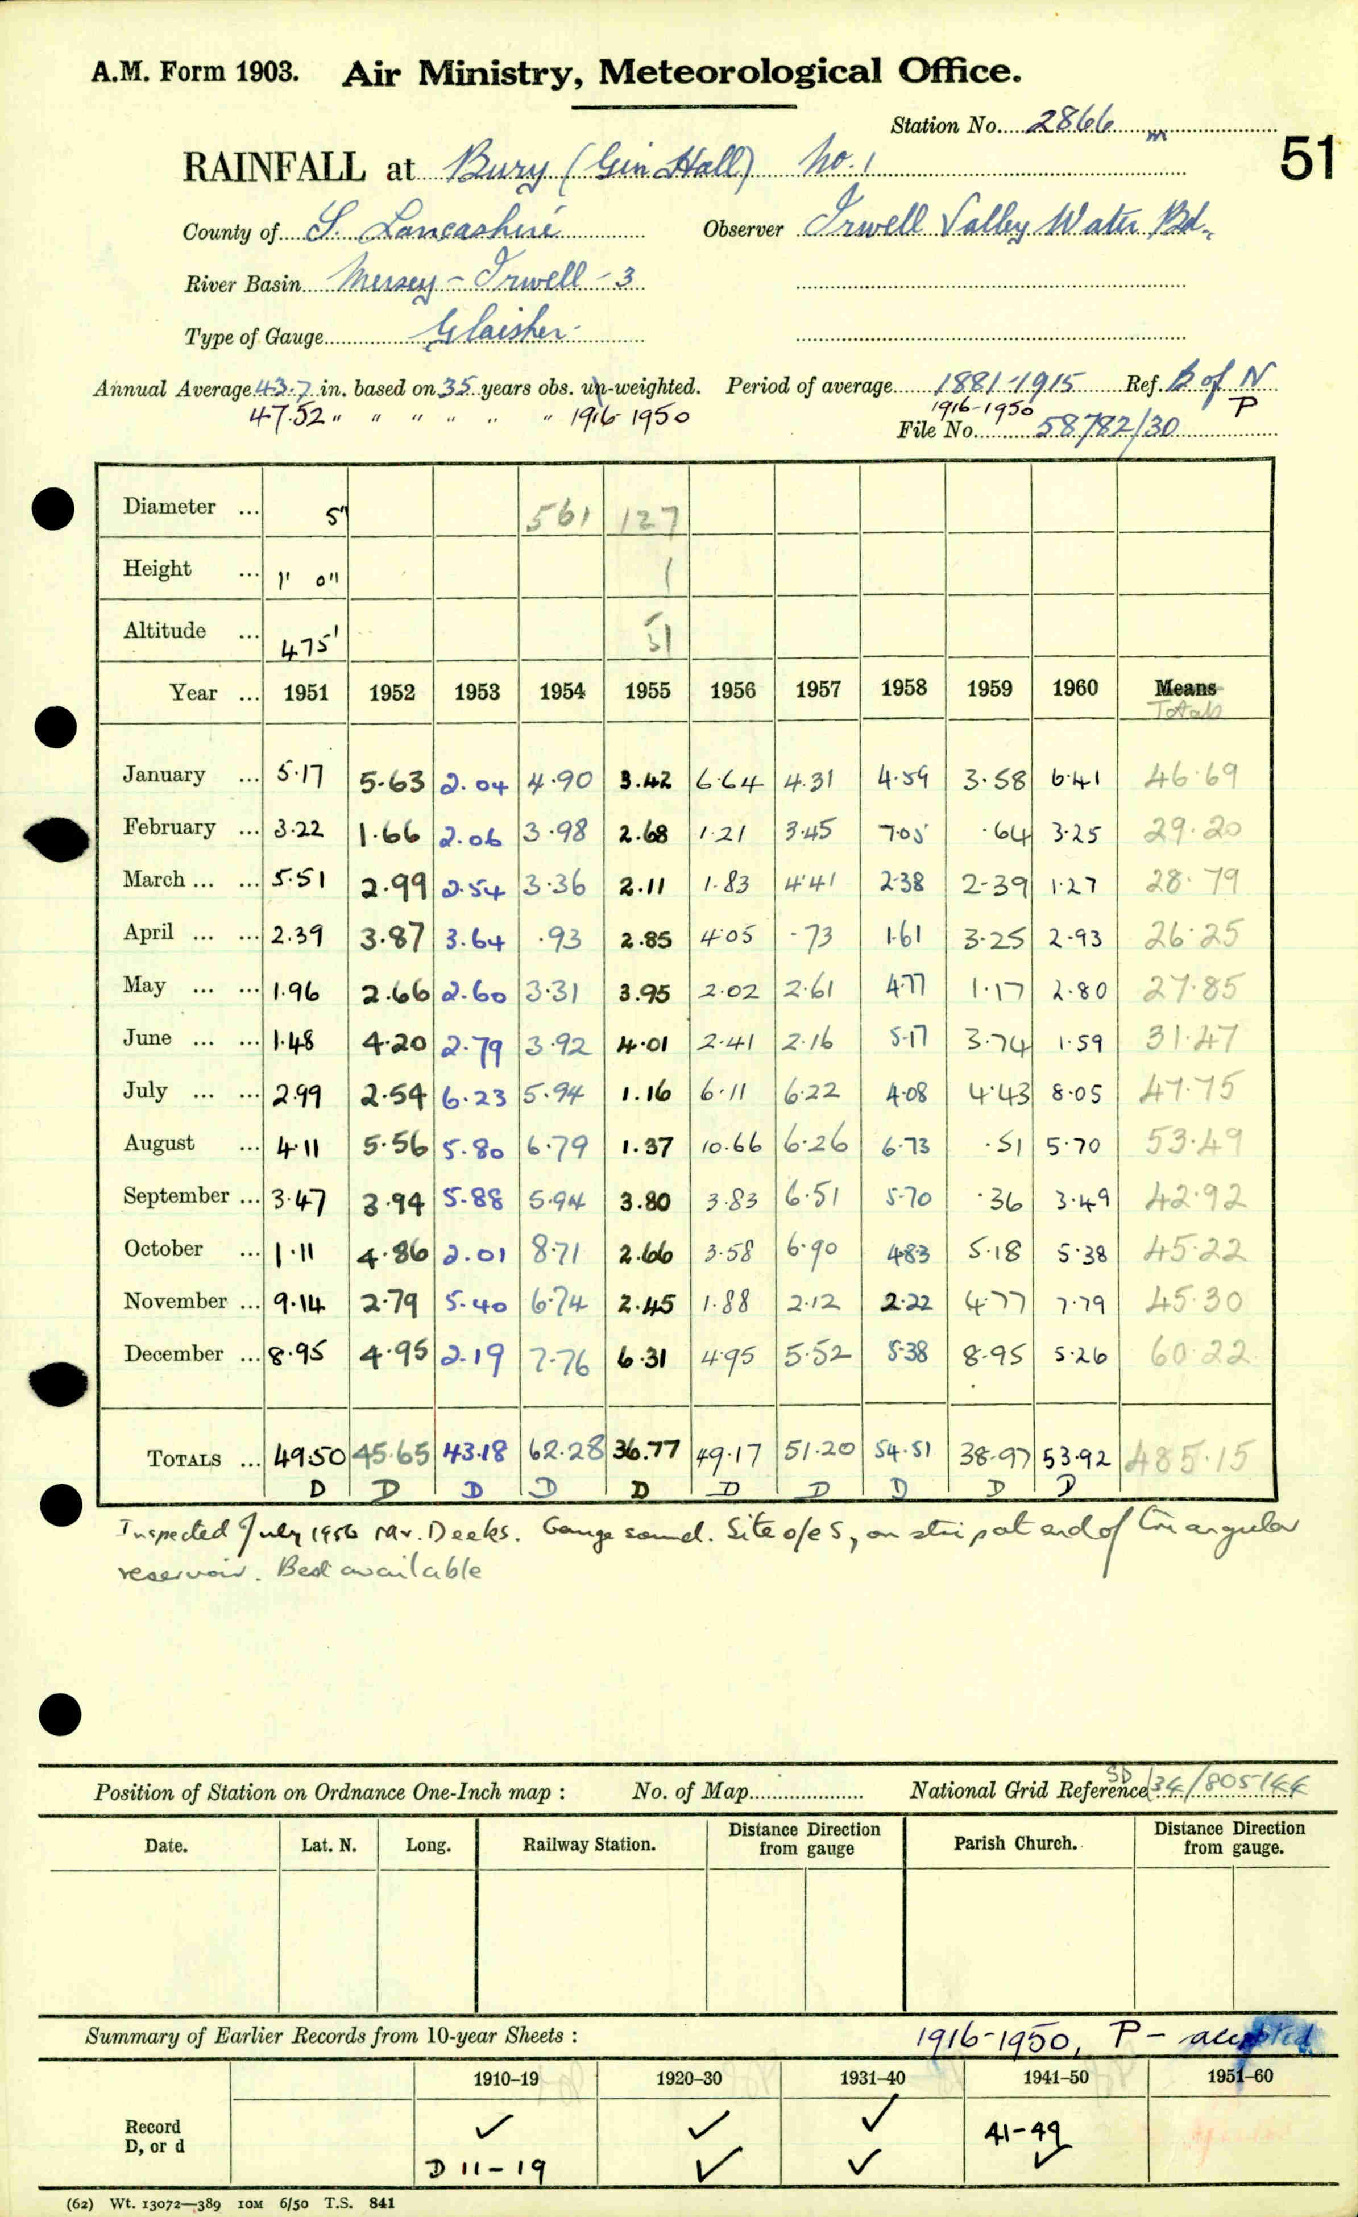 A.M. Form 1903. Air Ministry, Meteorological Office.
Station No. 2866 m
51
RAINFALL at Bury (Gin Hall) No. 1
County of S. Lancashire Observer Irwell Valley Water Bd.
River Basin Mersey - Irwell - 3
Type of Gauge Glaisher
Annual Average 43.7 in. based on 35 years obs. un-weighted. Period of average 1881-1915 Ref. B of N
47.52 " " " " " " 1916 1950 1916-1950 P
File No. 58782/30
Diameter ... 5" 561 127
Height ... 1' 0" 1
Altitude ... 475' 51
Year ... 1951 1952 1953 1954 1955 1956 1957 1958 1959 1960 Means
Totals
January ... 5.17 5.63 2.04 4.90 3.42 6.64 4.31 4.59 3.58 6.41 46.69
February ... 3.22 1.66 2.06 3.98 2.68 1.21 3.45 7.05 .64 3.25 29.20
March ... ... 5.51 2.99 2.54 3.36 2.11 1.83 4.41 2.38 2.39 1.27 28.79
April ... ... 2.39 3.87 3.64 .93 2.85 4.05 .73 1.61 3.25 2.93 26.25
May ... ... 1.96 2.66 2.60 3.31 3.95 2.02 2.61 4.77 1.17 2.80 27.85
June ... ... 1.48 4.20 2.79 3.92 4.01 2.41 2.16 5.17 3.74 1.59 31.47
July ... ... 2.99 2.54 6.23 5.94 1.16 6.11 6.22 4.08 4.43 8.05 47.75
August ... 4.11 5.56 5.80 6.79 1.37 10.66 6.26 6.73 .51 5.70 53.49
September ... 3.47 3.94 5.88 5.94 3.80 3.83 6.51 5.70 .36 3.49 42.92
October ... 1.11 4.86 2.01 8.71 2.66 3.58 6.90 4.83 5.18 5.38 45.22
November ... 9.14 2.79 5.40 6.74 2.45 1.88 2.12 2.22 4.77 7.79 45.30
December ... 8.95 4.95 2.19 7.76 6.31 4.95 5.52 5.38 8.95 5.26 60.22
TOTALS ... 49.50 45.65 43.18 62.28 36.77 49.17 51.20 54.51 38.97 53.92 485.15
D D D D D D D D D D
Inspected July 1956 Mr. Deeks. Gauge sound. Site o/e S, on strip at end of triangular
reservoir. Best available
Position of Station on Ordnance One-Inch map : No. of Map National Grid Reference SD 34/805144
Date. Lat. N. Long. Railway Station. Distance from gauge Direction Parish Church. Distance Direction from gauge.
Summary of Earlier Records from 10-year Sheets : 1916-1950, P - accepted
1910–19 1920–30 1931–40 1941–50 1951–60
Record ✓ ✓ ✓ 41-49
D, or d D 11-19 ✓ ✓ ✓
(62) Wt. 13072—389 10M 6/50 T.S. 841